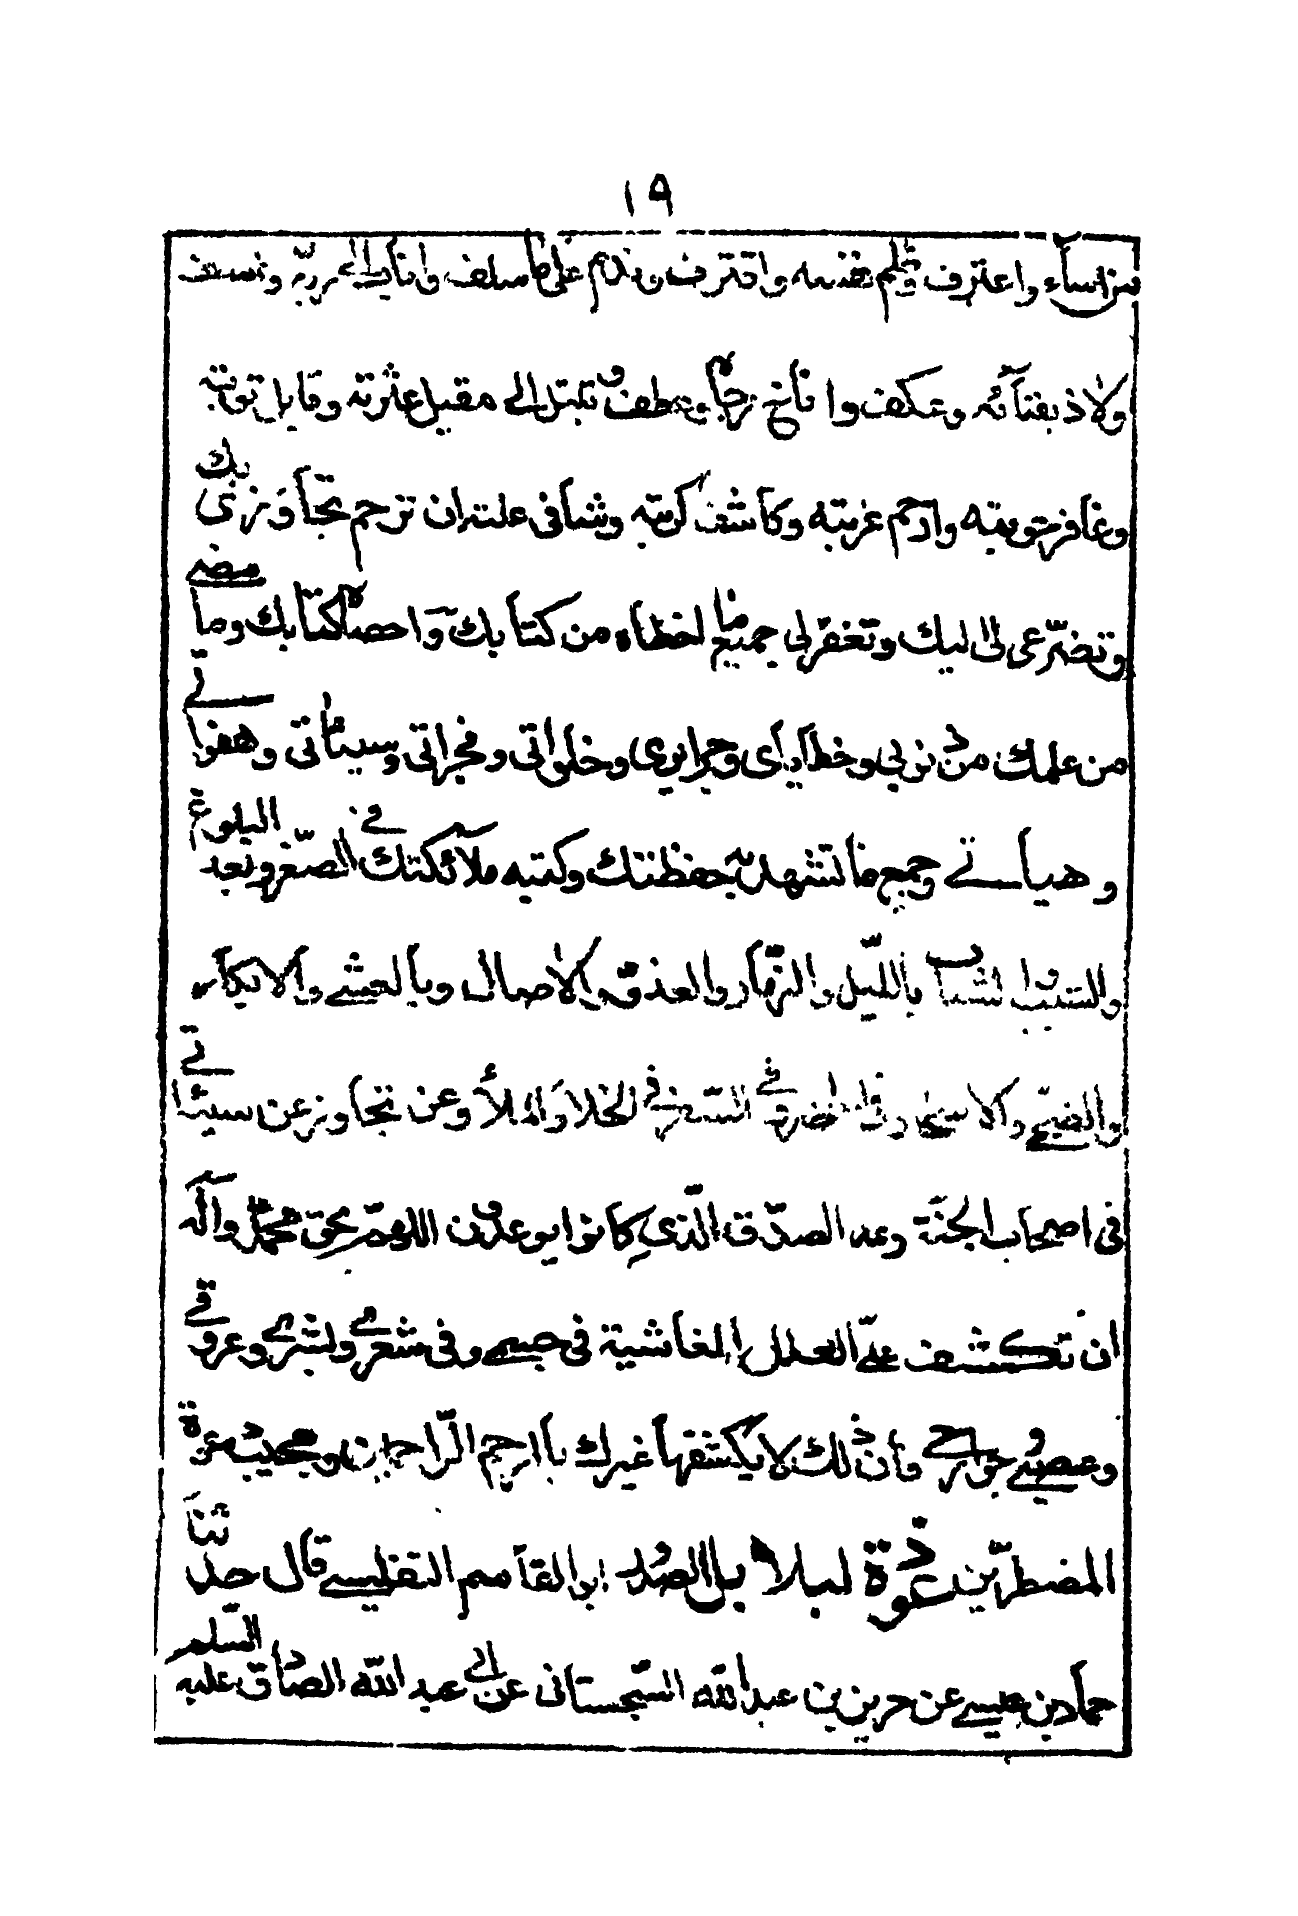 ١٩
من اساء واعترف وظلم نفسه واقترف وندم على ما سلف واناب الى ربه وتاسف
ولاذ بفنائه وعكف واناخ رجاه وعطف تبتل الى مقيل عثرته وقابل توبته
وغافر حوبته وارحم غربته وكاشف كربته وشافى علته ان ترحم تجاوزى بك
وتضرّعى الى اليك وتغفر لى جميع ما اخطاه من كتابك و احصاه كتابك وما مضى
من علمك من ذنوبى وخطاياى وجرايرى وخلواتى وفجراتى وسيئاتى وهفواتى
وهياتى وجميع ما تشهد به حفظتك وكتبه ملائكتك فى الصّغر وبعد البلوغ
والشيب والشباب بالليل والنّهار والغدوّ والاصال وبالعشى والابكار
والضّحى والاسحار وفى الحضر وفى السّفر فى الخلا والملأ وعن تجاوز عن سيئاتى
فى اصحاب الجنّة وعد الصدّق الّذى كانوا يوعدون اللهمّ بحق محمّد وآله
ان تكشف علىّ العلل الغاشية فى جسمى وفى شعرى وبشرى وعروقى
وعصبى وجوارحى فان ذلك لا يكشفها غيرك يا ارحم الرّاحمين ومجيب دعوة
المضطرّين دعوة لبلابل الصّدر ابو القاسم التفليسى قال حدّثنا
حماد بن عيسى عن حريز بن عبد الله السّجستانى عن ابى عبد الله الصّادق عليه السّلم